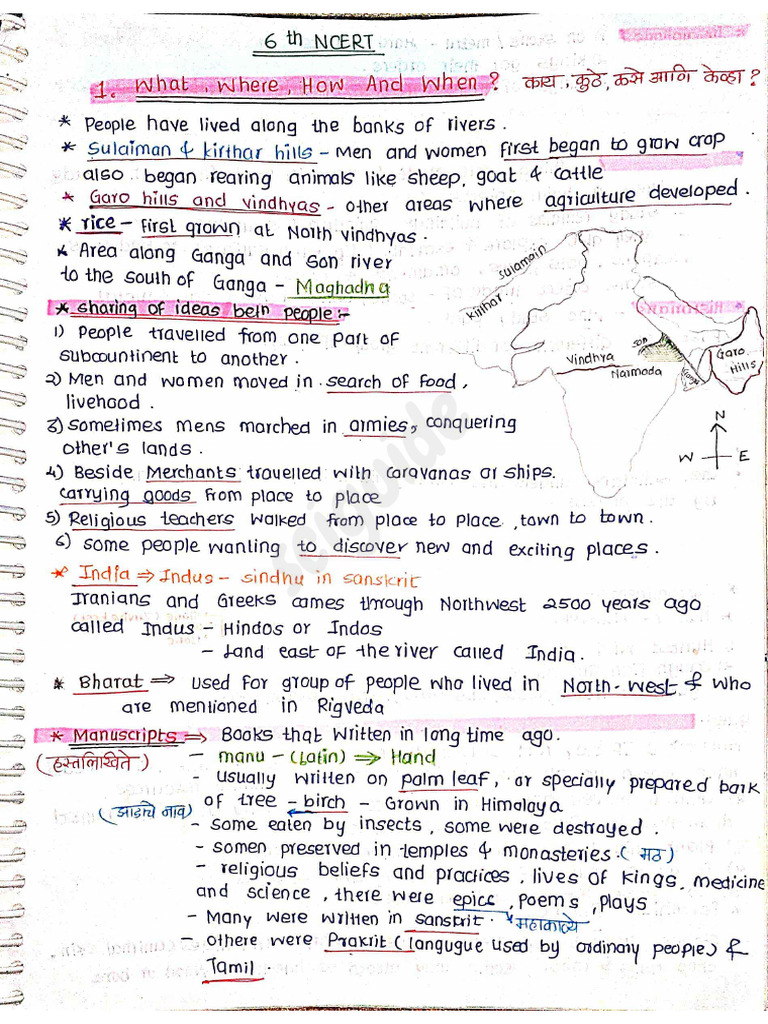 6th NCERT
1. What, Where, How And When? काय, कुठे, कसे आणि केव्हा?
* People have lived along the banks of rivers.
* Sulaiman & kirthar hills - Men and women first began to grow crop
also began rearing animals like sheep, goat & cattle
* Garo hills and vindhyas - other areas where agriculture developed.
* rice - first grown at North vindhyas.
* Area along Ganga and Son river
to the south of Ganga - Maghadha
* sharing of ideas betn people:-
1) People travelled from one part of
subcountinent to another.
2) Men and women moved in search of food,
livehood.
3) Sometimes mens marched in armies, conquering
other's lands.
4) Beside Merchants travelled with caravanas or ships.
carrying goods from place to place
5) Religious teachers walked from place to place, town to town.
6) some people wanting to discover new and exciting places.
Kirthar
Sulamain
Son
Vindhya
Narmada
Ganga
Garo
Hills
N
W E
* India ⇒ Indus - sindhu in sanskrit
Iranians and Greeks cames through Northwest 2500 years ago
called Indus - Hindos or Indos
- Land east of the river called India.
* Bharat ⇒ used for group of people who lived in North-west & who
are mentioned in Rigveda
* Manuscripts ⇒ Books that written in long time ago.
(हस्तलिखिते) - manu - (Latin) ⇒ Hand
- usually written on palm leaf, or specially prepared bark
(झाडाचे नाव) of tree - birch - Grown in Himalaya
- some eaten by insects, some were destroyed.
- somen preserved in temples & monasteries. (मठ)
- religious beliefs and practices, lives of kings, medicine
and science, there were epics, poems, plays
- Many were written in sanskrit. महाकाव्ये
- others were Prakrit (langugue used by ordinary people) &
Tamil.
seiguide